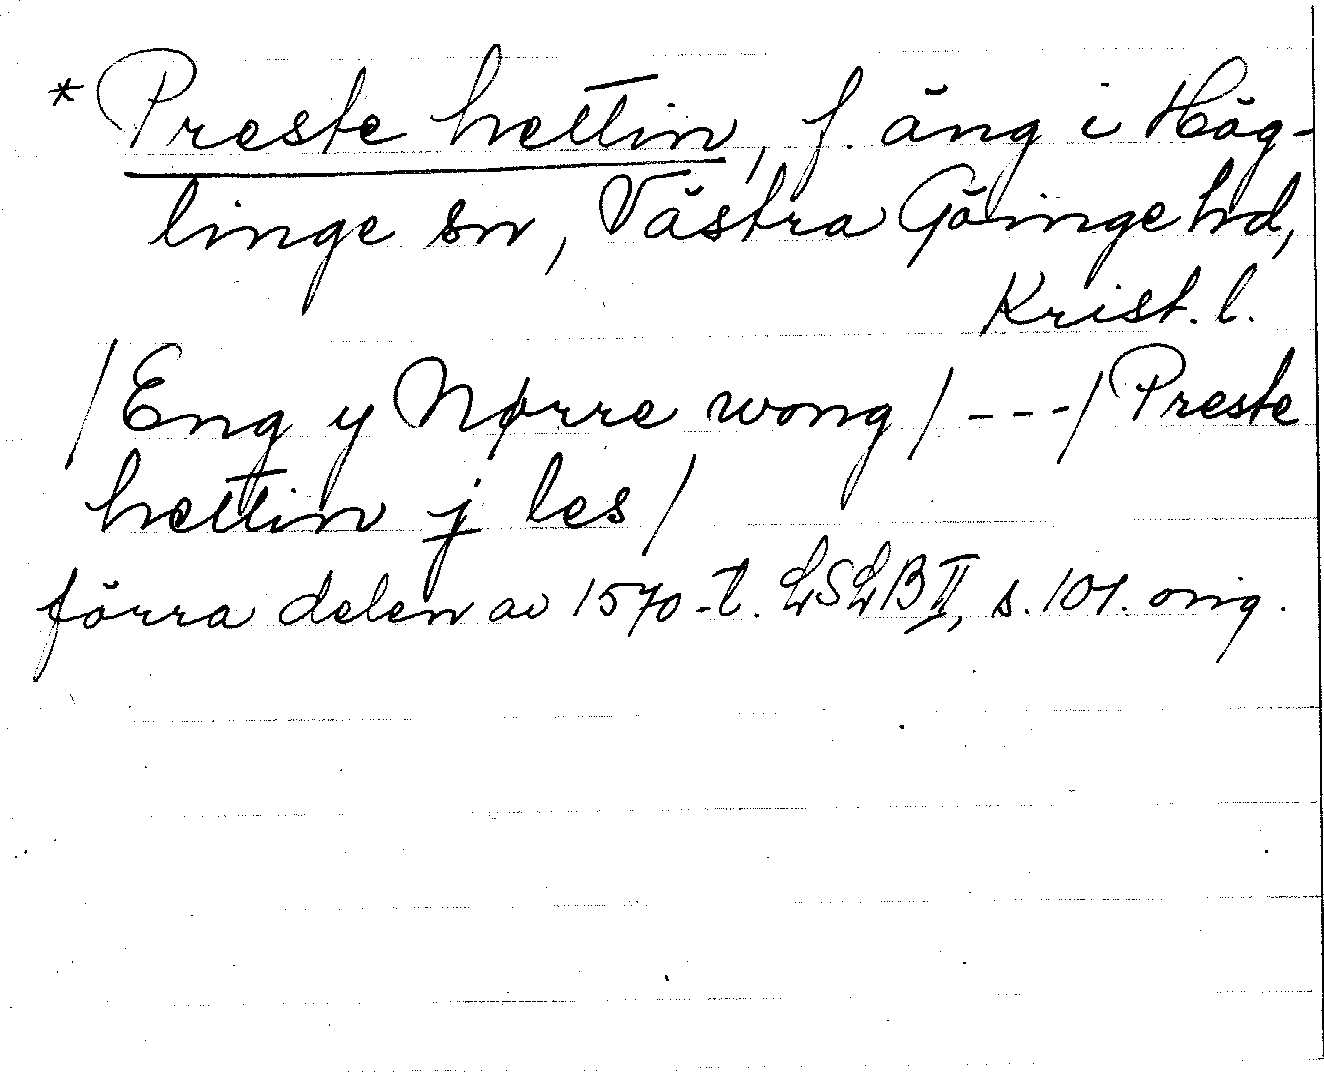 * Preste hettin, f. äng i Hög-
linge sn, Västra Göinge hd,
Krist. l.
/Eng y Nørre wong/ ---/Preste
hettin j les/
förra delen av 1570-t. LSLB II, s. 101. orig.